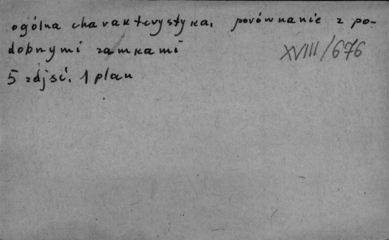 ogólna charakterystyka, porównanie z po-
dobnymi zamkami
XVIII/676
5 zdjęć, 1 plan